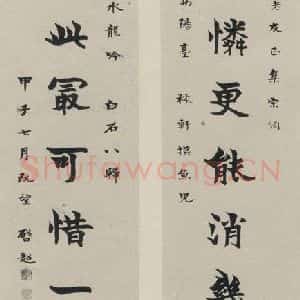 老友正集宋詞
憐更能消幾
陽臺 稼軒摸魚兒
水龍吟 白石八歸
此冣可惜一
甲子七月既望 啓超
Shufawang.CN